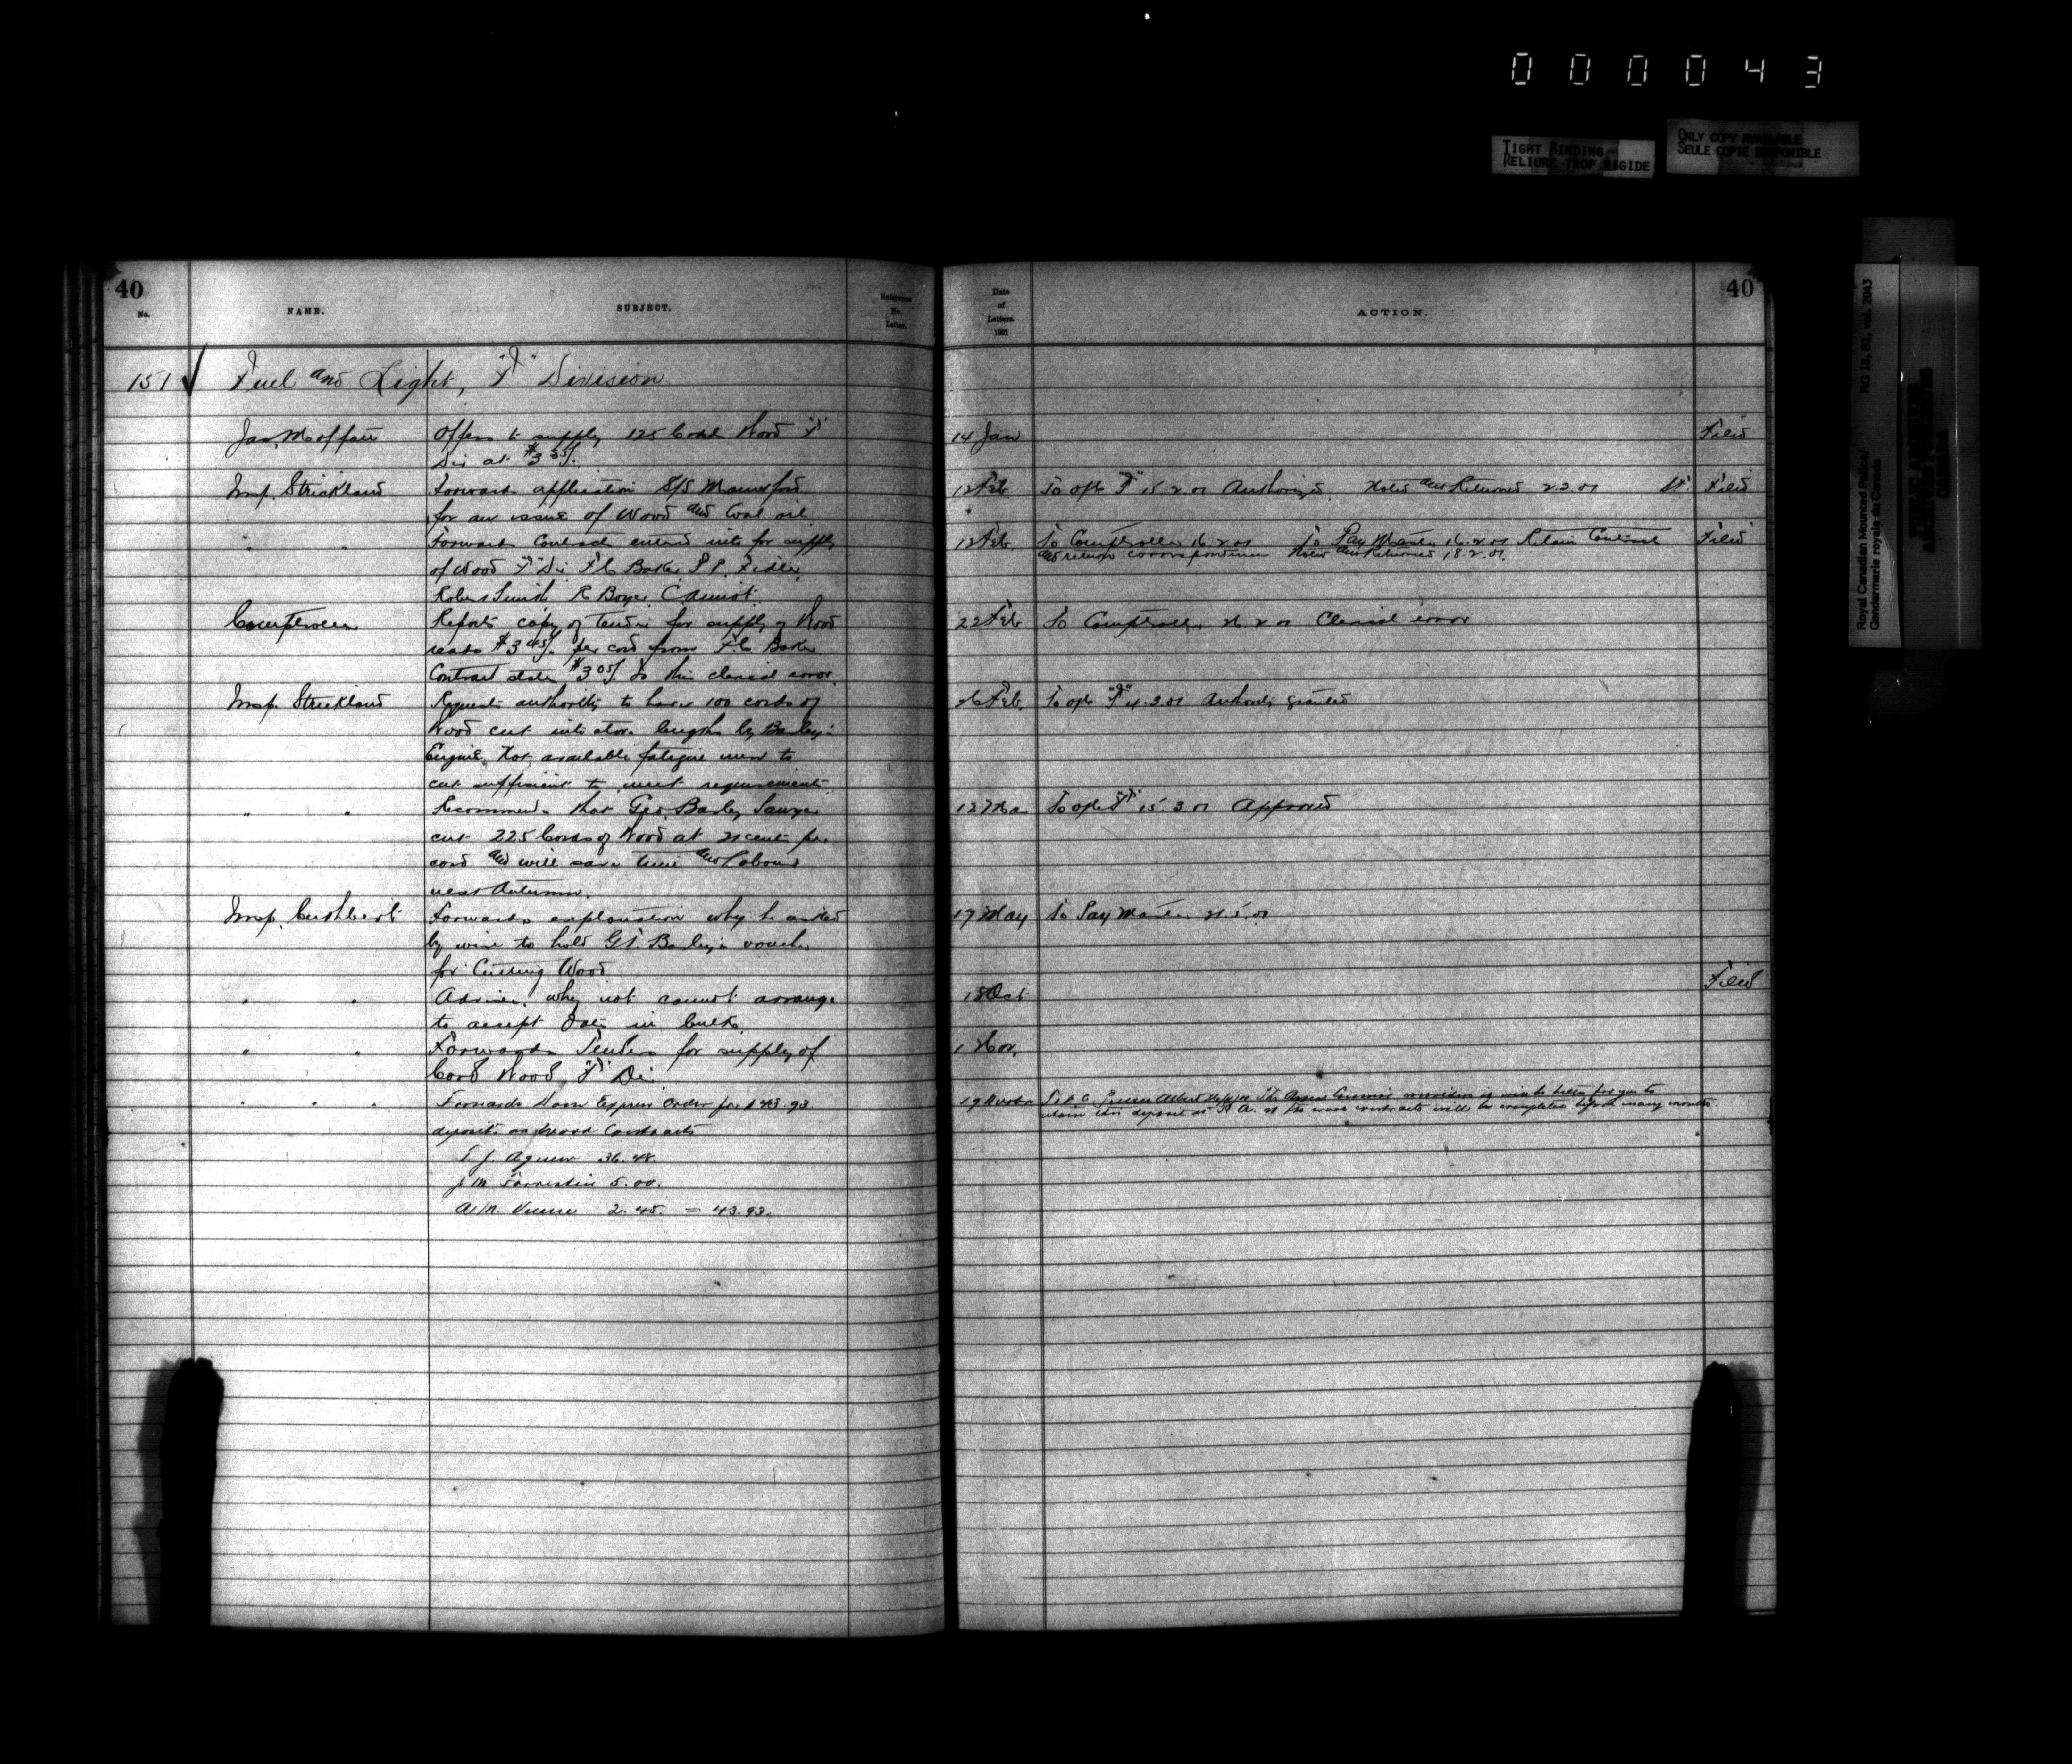 000043
TIGHT BINDING
RELIURE TROP RIGIDE
ONLY COPY AVAILABLE
SEULE COPIE DISPONIBLE
Royal Canadian Mounted Police/
Gendarmerie royale du Canada
RG 18, B1, vol. 2043
PUBLIC ARCHIVES
ARCHIVES PUBLIQUES
CANADA
40
No.
NAME.
SUBJECT.
Reference
No.
Letter.
Date
of
Letters.
1901
ACTION.
40
151 Fuel and Light, "F" Division
Jas. Moffatt
Offers to supply 125 Cords Wood "F"
Div at $3 35/.
14 Jan
Filed
Insp. Strickland
Forwards application S/S
for an issue of Wood and Coal oil.
12 Feb
To ofc "F" 15.2.01 Authorized. Noted and Returned 22.01
Filed
" "
Forwards Contracts entered into for supply
of Wood "F" Div. F C Baker, P P. Fidler,
Robert Smith R Boyer,
12 Feb
To Comptroller 16.2.01 To Pay Master 16.2.01 Retain Contract
and return correspondence Noted and Returned 18.2.01.
Filed
Comptroller
Reports copy of Tender for supply of Wood
reads $3 45/. per cord from F C Baker
Contract states $3 05/. Is this clerical error.
22 Feb
To Comptroller 26 2 01 Clerical error
Insp. Strickland
Requests authority to have 100 cords of
Wood cut into stove lengths by Barley's
Engine. Not available fatigue men to
cut sufficient to meet requirements.
26 Feb.
To ofc "F" 4.3.01 Authority granted
" "
Recommends that Geo. Barley Sawyer
cut 225 Cords of Wood at cents per
cord and will save time and labour
next Autumn.
12 Mar
To ofc "F" 15.3.01 Approved
Insp. Cuthbert
Forwards explanation why he asked
by wire to hold G T. Barley's voucher
for Cutting Wood
17 May
To Pay Master 21.5.01
" "
Advise. why not cannot arrange
to accept Oats in bulk.
15 Oct
Filed
" "
Forwards Tenders for supply of
Cord Wood "F" Div.
1 Nov.
" " "
Forwards Dom Express Order for $43.93
deposits on Wood Contracts
T. J. Agnew 36.48.
J M 5.00.
A. M. 2.45. = 43.93.
19 Novbr
retain this deposit at P. A. as the wood contracts will be completed before many months.